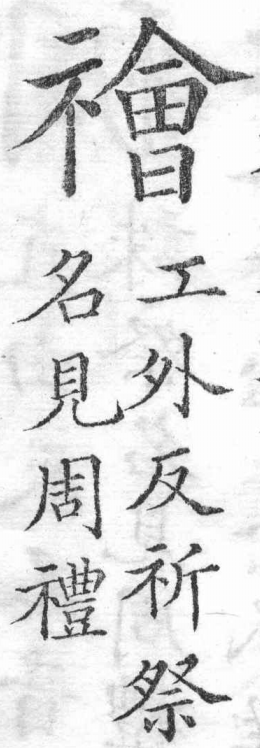 禬
工外反祈祭
名見周禮